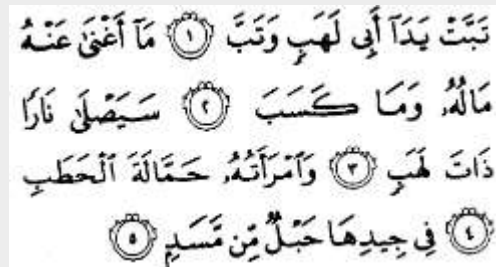 تَبَّتْ يَدَآ أَبِى لَهَبٍ وَتَبَّ ۝١ مَآ أَغْنَىٰ عَنْهُ
مَالُهُۥ وَمَا كَسَبَ ۝٢ سَيَصْلَىٰ نَارًا
ذَاتَ لَهَبٍ ۝٣ وَٱمْرَأَتُهُۥ حَمَّالَةَ ٱلْحَطَبِ
۝٤ فِى جِيدِهَا حَبْلٌ مِّن مَّسَدٍۭ ۝٥